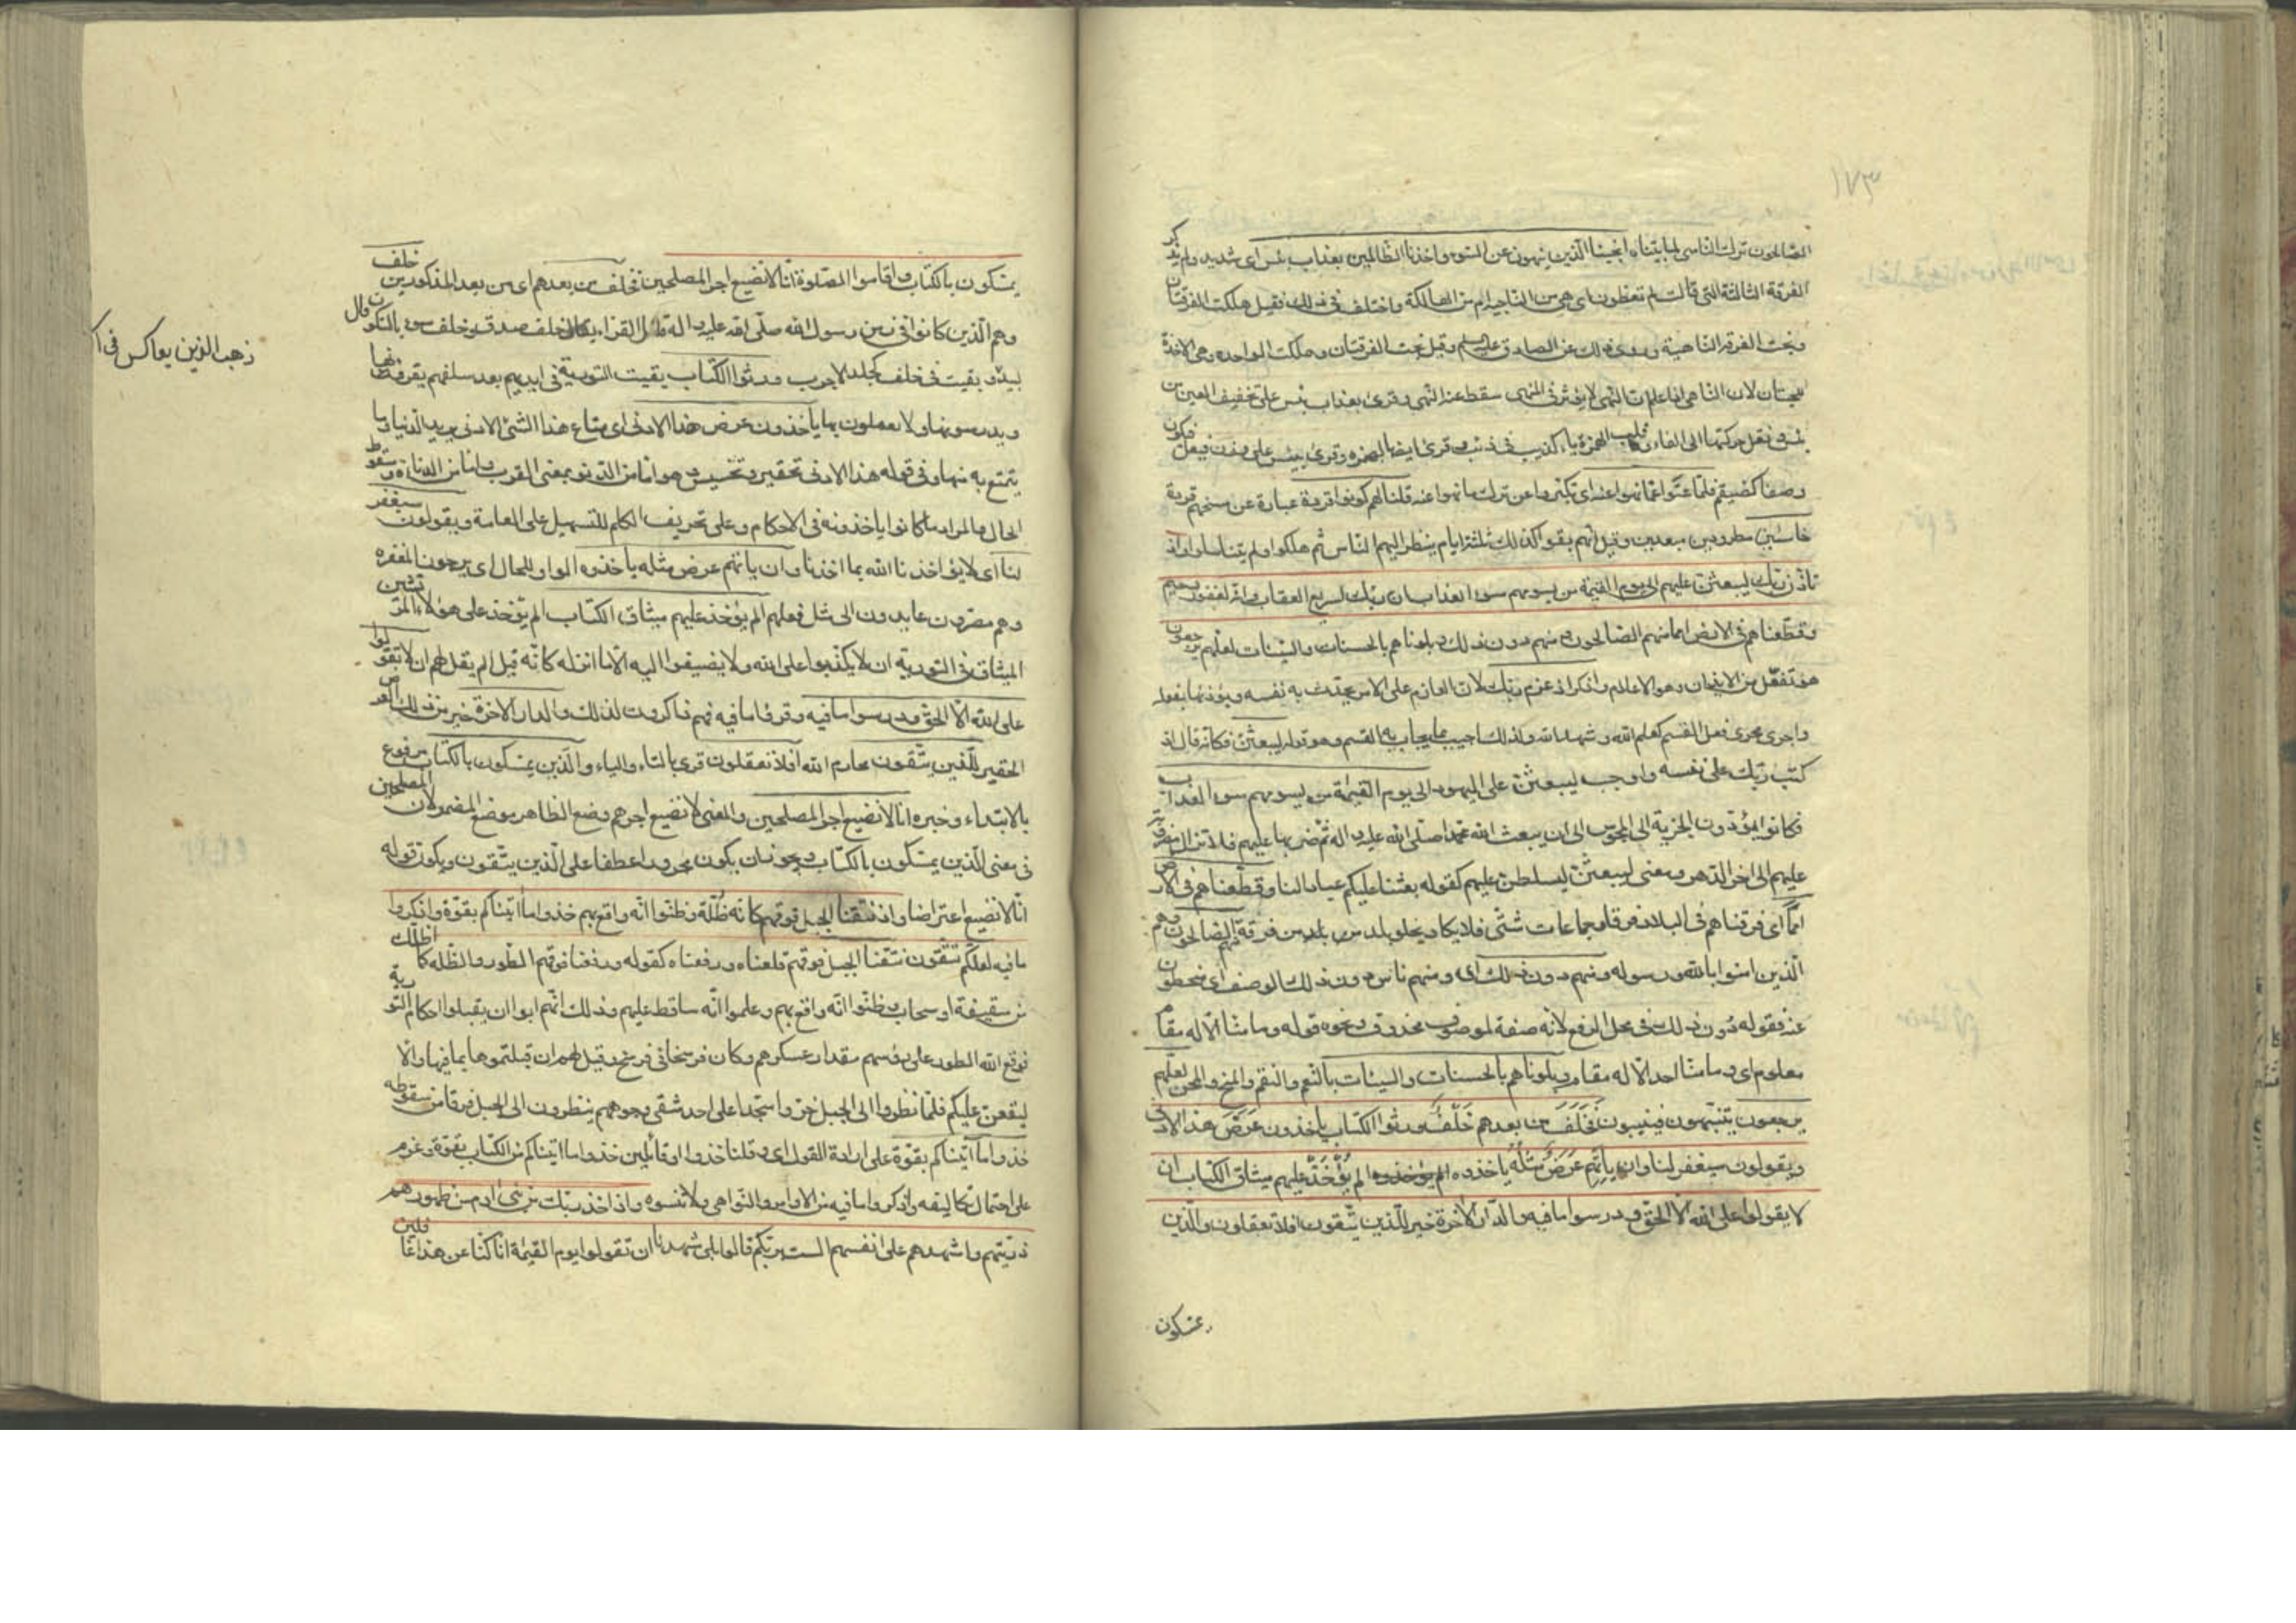 ١٧٣
الصالحون ترك الناسى لما ينساه انجينا الذين ينهون عن السوء واخذنا الظالمين بعذاب بئس اى شديد ولم يذكر
الفرقة الثالثة التى قالت لم تعظون اى هى من الناجية ام من الهالكة واختلف فى ذلك فقيل هلكت الفرقتان
ونجت الفرقة الناهية وروى ذلك عن الصادق عليه السلم وقيل نجت الفرقتان وهلكت الواحدة وهى الاخذة
للحيتان لان الناهى اذا علم ان النهى لا يؤثر فى المنهى سقط عنه النهى وقرئ بعذاب بئس على تخفيف العين من
بئس ونقل حركتها الى الفاء وقلب الهمزة ياء كذيب فى ذئب وقرئ ايضا بالهمزة وقرئ بيئس على وزن فيعل فيكون
وصفا كضيغم فلما عتوا عما نهوا عنه اى تكبروا عن ترك ما نهوا عنه قلنا لهم كونوا قردة عبارة عن مسخهم قردة
خاسئين مطرودين مبعدين وقيل انهم بقوا كذلك ثلثة ايام ينظر اليهم الناس ثم هلكوا ولم يتناسلوا واذ
تاذن ربك ليبعثن عليهم الى يوم القيمة من يسومهم سوء العذاب ان ربك لسريع العقاب وانه لغفور رحيم
وقطعناهم فى الارض امما منهم الصالحون ومنهم دون ذلك وبلوناهم بالحسنات والسيئات لعلهم يرجعون
هو تفعل من الايذان وهو الاعلام واذكر اذ عزم ربك لان العازم على الامر يحدث به نفسه ويؤذنها بفعله
واجرى مجرى فعل القسم كعلم الله وشهد الله ولذلك اجيب بما يجاب به القسم وهو قوله ليبعثن فكانه قال اذ
كتب ربك على نفسه واوجب ليبعثن على اليهود الى يوم القيمة من يسومهم سوء العذاب
فكانوا يؤدون الجزية الى المجوس الى ان يبعث الله محمدا صلى الله عليه واله ثم ضربها عليهم فلا تزال مضروبة
عليهم الى اخر الدهر ومعنى ليبعثن ليسلطن عليهم كقوله بعثنا عليكم عبادا لنا وقطعناهم فى الارض
امما اى فرقناهم فى البلاد فرقا وجماعات شتى فلا يكاد يخلو بلد من بلد من فرقة منهم الصالحون وهم
الذين امنوا بالله ورسوله ومنهم دون ذلك اى ومنهم ناس دون ذلك الوصف اى منحطون
عنه فقوله دون ذلك فى محل الرفع لانه صفة لموصوف محذوف ونحوه قوله وما منا الا له مقام
معلوم اى وما منا احد الا له مقام وبلوناهم بالحسنات والسيئات بالنعم والنقم والمنح والمحن لعلهم
يرجعون يتنبهون فينيبون فَخَلَفَ من بعدهم خَلْفٌ ورثوا الكتاب ياخذون عَرَضَ هذا الادنى
ويقولون سيغفر لنا وان ياتهم عَرَضٌ مثلُهُ ياخذوه الم يؤخذ عليهم ميثاق الكتاب ان
لا يقولوا على الله الا الحق ودرسوا ما فيه والدار الاخرة خير للذين يتقون افلا تعقلون والذين
يمسكون
يمسكون بالكتاب واقاموا الصلوة انا لا نضيع اجر المصلحين فخلف من بعدهم اى من بعد المذكورين خلف
وهم الذين كانوا فى زمن رسول الله صلى الله عليه واله قال الفراء يقال خلف صدق وخلف سوء بالسكون قال
لبيد وبقيت فى خلف كجلد الاجرب ورثوا الكتاب بقيت التورية فى ايديهم بعد سلفهم يقرؤنها
ويدرسونها ولا يعملون بها ياخذون عرض هذا الادنى اى متاع هذا الشئ الادنى يريد الدنيا وما
يتمتع به منها وفى قوله هذا الادنى تحقير وتخسيس وهو اما من الدنو بمعنى القرب واما من الدناءة وسقوط
الحال والمراد ما كانوا ياخذونه فى الاحكام وعلى تحريف الكلم للتسهيل على العامة ويقولون سيغفر
لنا اى لا يؤاخذنا الله بما اخذنا وان ياتهم عرض مثله ياخذوه الواو للحال اى يرجون المغفرة
وهم مصرون عايدون الى مثل فعلهم الم يؤخذ عليهم ميثاق الكتاب الم يؤخذ على هؤلاء المرتشين
الميثاق فى التورية ان لا يكذبوا على الله ولا يضيفوا اليه الا ما انزله كانه قيل الم يقل لهم ان لا تقولوا
على الله الا الحق ودرسوا ما فيه وقرؤا ما فيه فهم ذاكرون لذلك والدار الاخرة خير من ذلك العرض
الحقير للذين يتقون محارم الله افلا تعقلون قرئ بالتاء والياء والذين يمسكون بالكتاب مرفوع
بالابتداء وخبره انا لا نضيع اجر المصلحين والمعنى لا نضيع اجرهم وضع الظاهر موضع المضمر لان المصلحين
فى معنى الذين يمسكون بالكتاب ويجوز ان يكون مجرورا عطفا على الذين يتقون ويكون قوله
انا لا نضيع اعتراضا واذ نتقنا الجبل فوقهم كانه ظلة وظنوا انه واقع بهم خذوا ما اتيناكم بقوة واذكروا
ما فيه لعلكم تتقون نتقنا الجبل فوقهم قلعناه ورفعناه كقوله ورفعنا فوقهم الطور والظلة كل ما اظلك
من سقيفة او سحاب وظنوا انه واقع بهم وعلموا انه ساقط عليهم وذلك انهم ابوا ان يقبلوا احكام التورية
فرفع الله الطور على رؤسهم مقدار عسكرهم وكان فرسخا فى فرسخ وقيل لهم ان قبلتموها بما فيها والا
ليقعن عليكم فلما نظروا الى الجبل خروا سجدا على احد شقى وجوههم ينظرون الى الجبل فرقا من سقوطه
خذوا ما اتيناكم بقوة على ارادة القول اى وقلنا خذوا او قائلين خذوا ما اتيناكم من الكتاب بقوة وعزم
على احتمال تكاليفه واذكروا ما فيه من الاوامر والنواهى ولا تنسوه واذ اخذ ربك من بنى ادم من ظهورهم
ذريتهم واشهدهم على انفسهم الست بربكم قالوا بلى شهدنا ان تقولوا يوم القيمة انا كنا عن هذا غافلين
ذهب الذين يعاش فى ا